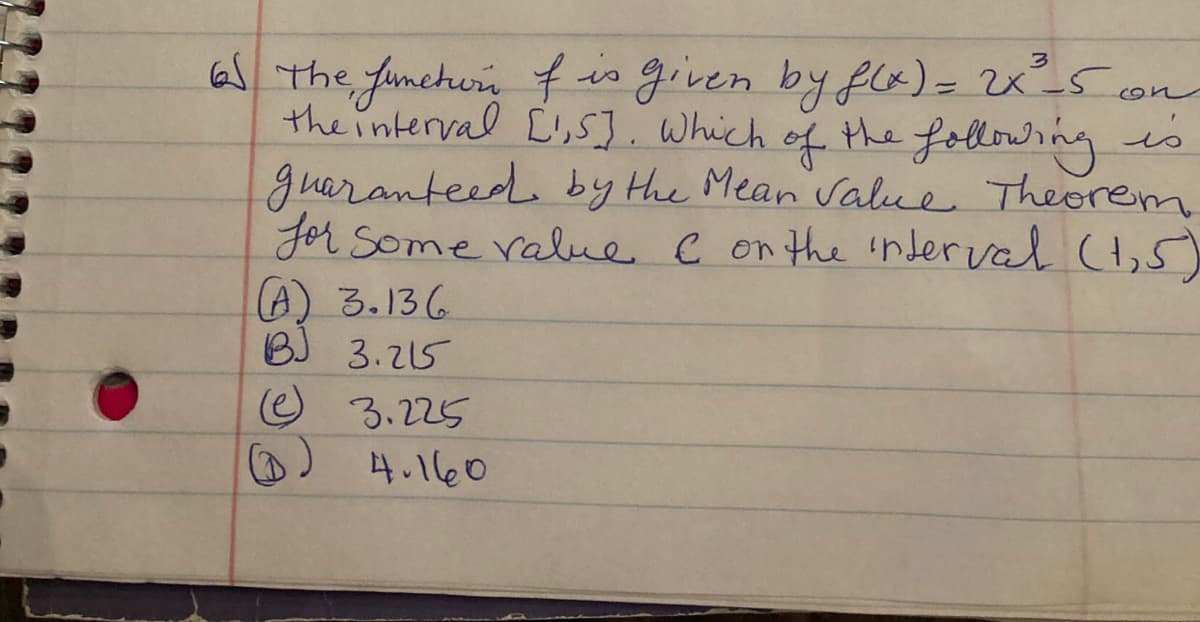 6) The function f is given by f(x) = 2x³-5 on
the interval [1,5]. Which of the following is
guaranteed by the Mean Value Theorem
for some value C on the interval (1,5)
(A) 3.136
B) 3.215
(C) 3.225
(D) 4.160